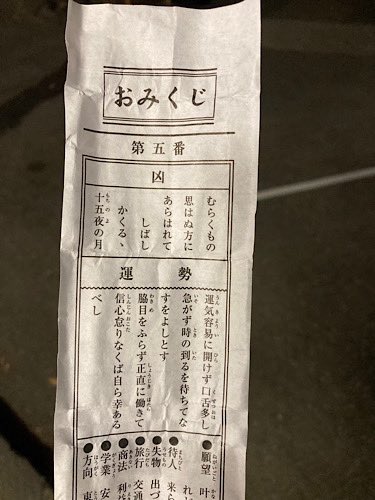 おみくじ
第五番
凶
むらくもの
思はぬ方に
あらはれて
しばし
かくるゝ
十五夜の月
運勢
運気容易に開けず口舌多し
急がず時の到るを待ちてな
すをよしとす
脇目をふらず正直に働きて
信心怠りなくば自ら幸ある
べし
●願望 叶
れ
●待人 来
●失物 出づ
●旅行 交通
●商法 利益
●学業 安
●方向 東